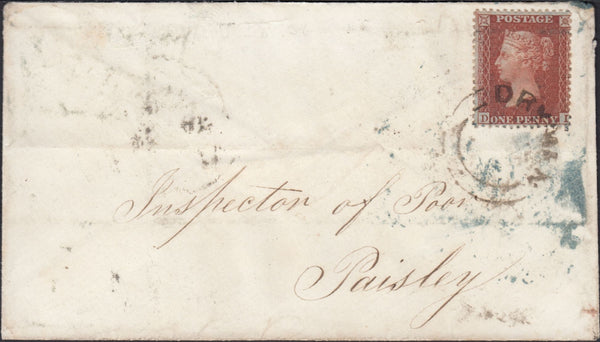 POSTAGE
D ONE PENNY
Inspector of Poor
Paisley